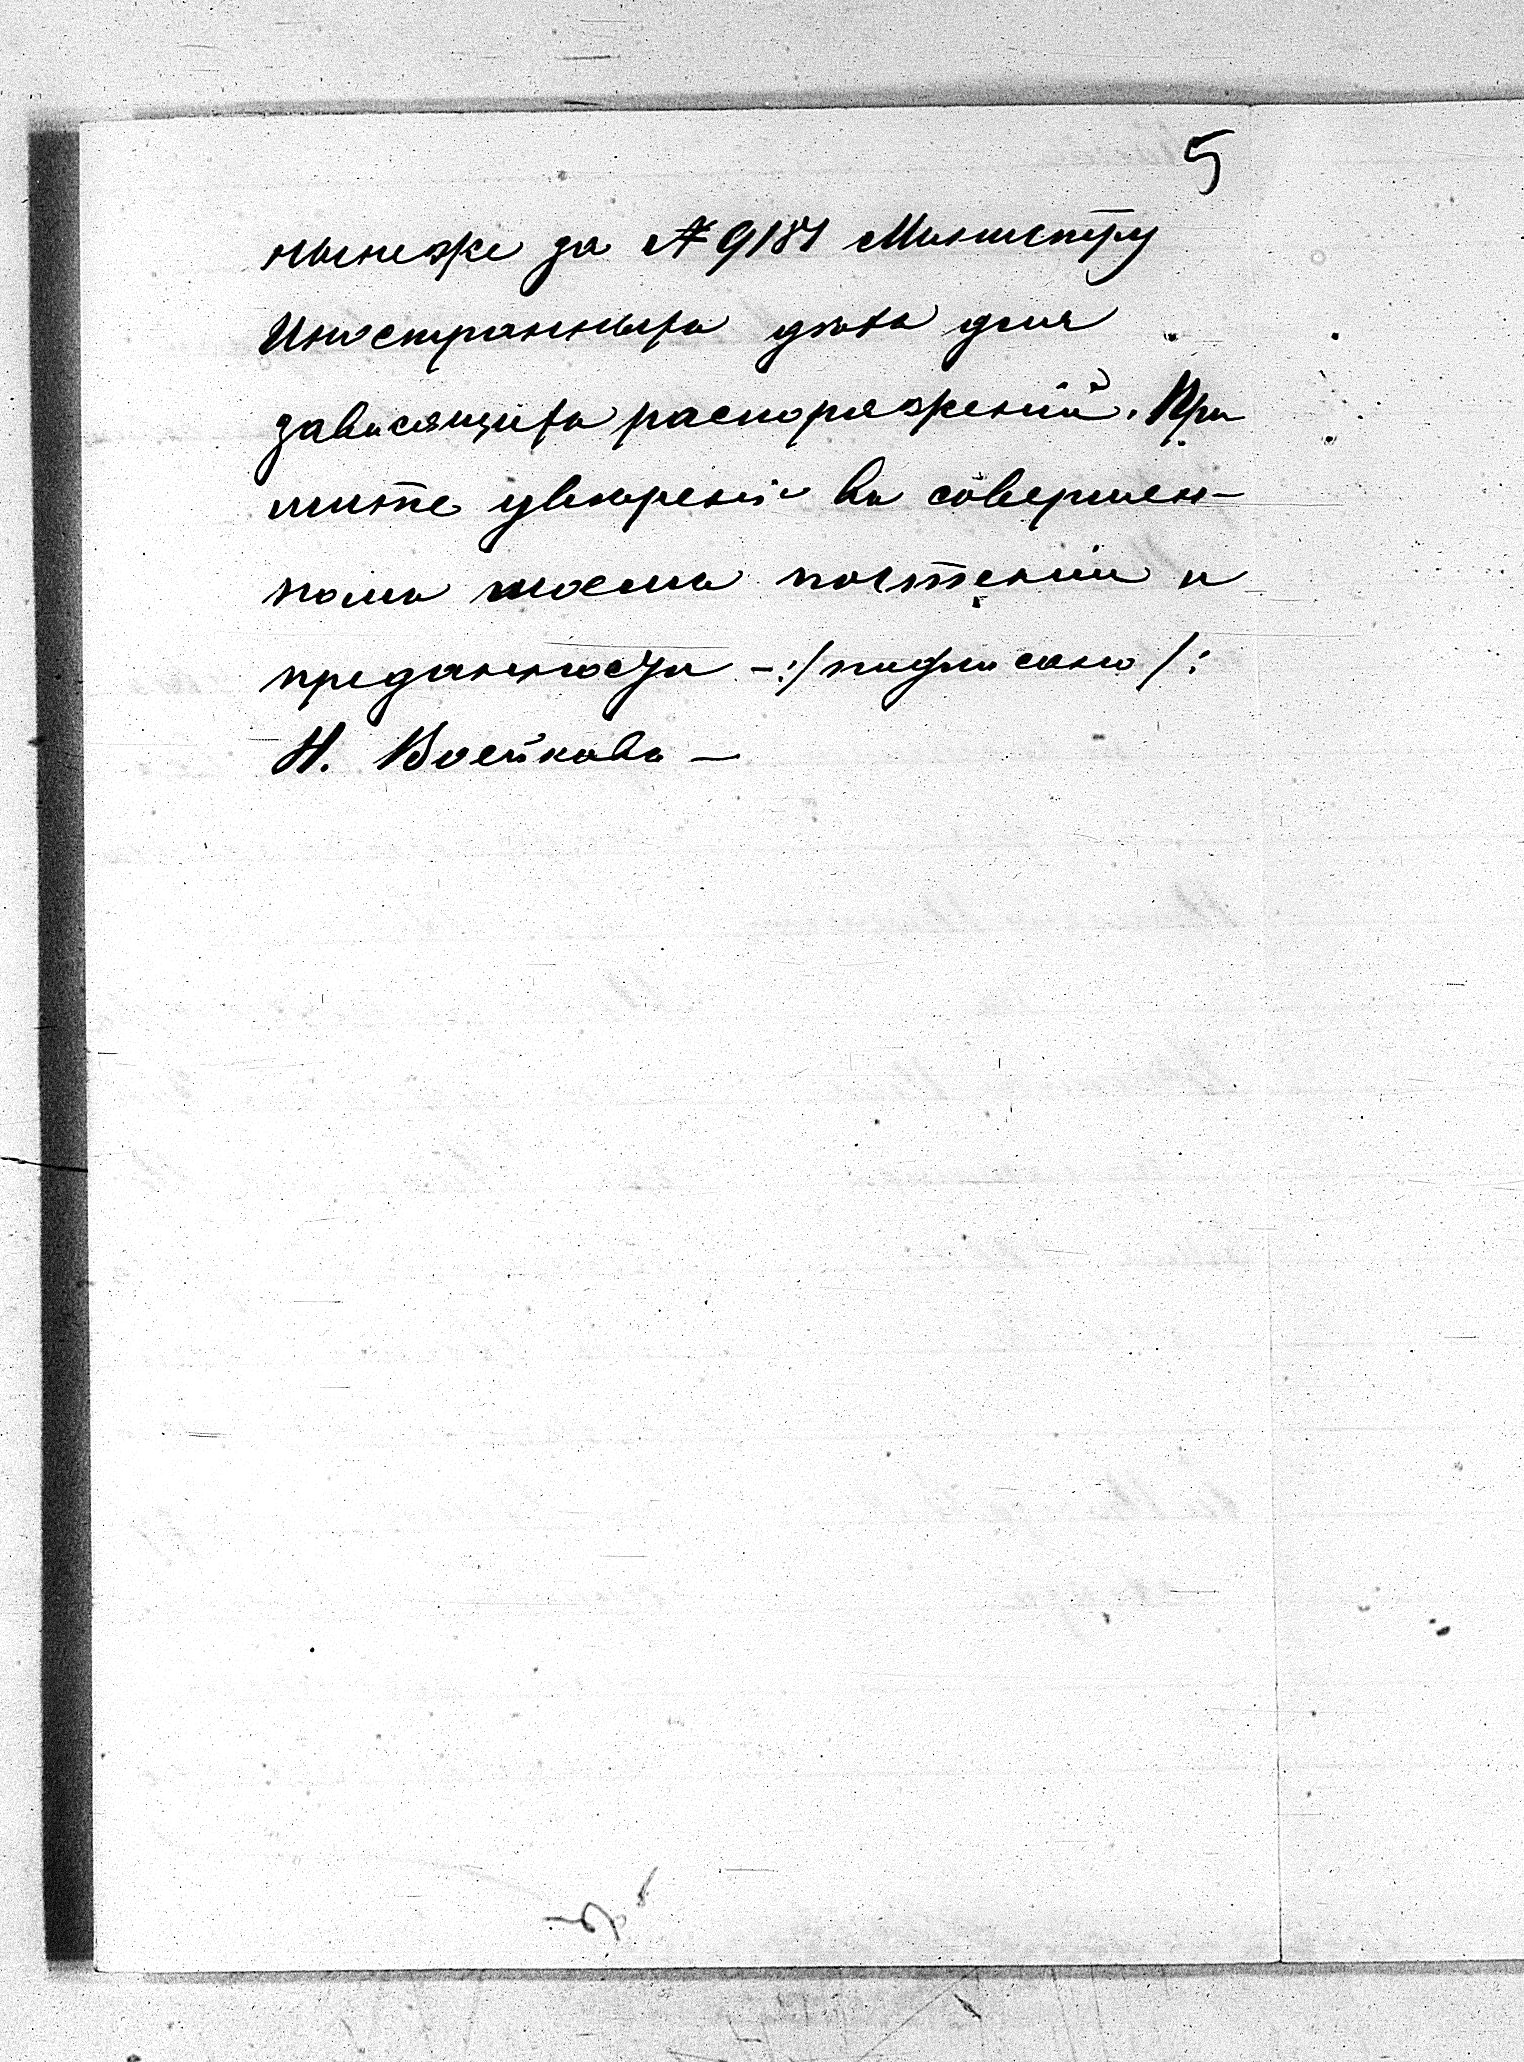 5
нынеже за № 9181 Министру
Иностранныхъ дѣлъ для
зависящихъ распоряженій. При
мите увѣренiе въ совершен-
номъ моемъ почтеніи и
преданности -:/подписано/:
Н. Воейковъ —